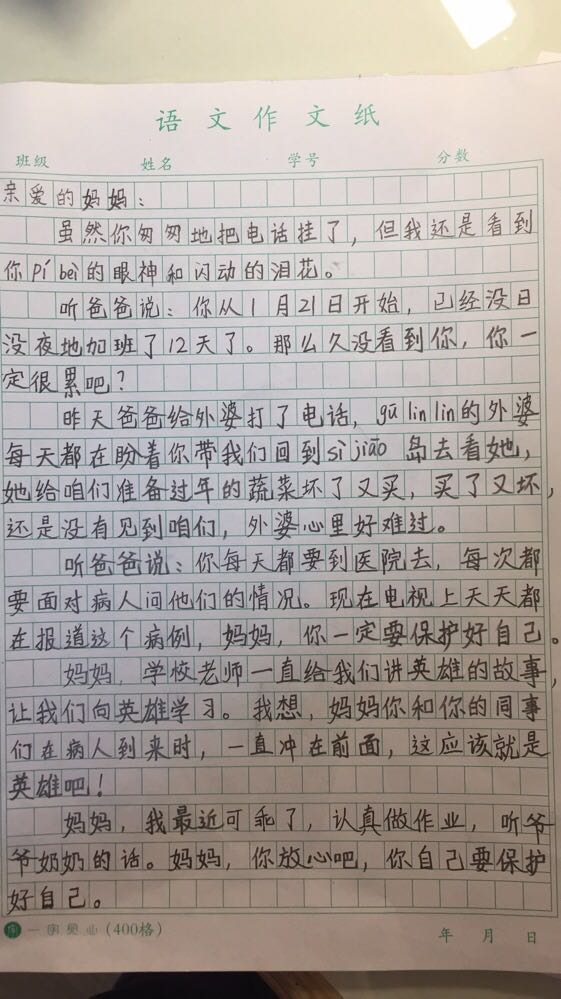 语文作文纸
班级 姓名 学号 分数
亲爱的妈妈：
虽然你匆匆地把电话挂了，但我还是看到
你pí bèi的眼神和闪动的泪花。
听爸爸说：你从1月21日开始，已经没日
没夜地加班了12天了。那么久没看到你，你一
定很累吧？
昨天爸爸给外婆打了电话，gū lin lin的外婆
每天都在盼着你带我们回到sì jiāo 岛去看她，
她给咱们准备过年的蔬菜坏了又买，买了又坏，
还是没有见到咱们，外婆心里好难过。
听爸爸说：你每天都要到医院去，每次都
要面对病人问他们的情况。现在电视上天天都
在报道这个病例，妈妈，你一定要保护好自己。
妈妈，学校老师一直给我们讲英雄的故事，
让我们向英雄学习。我想，妈妈你和你的同事
们在病人到来时，一直冲在前面，这应该就是
英雄吧！
妈妈，我最近可乖了，认真做作业，听爷
爷奶奶的话。妈妈，你放心吧，你自己要保护
好自己。
(400格) 年 月 日